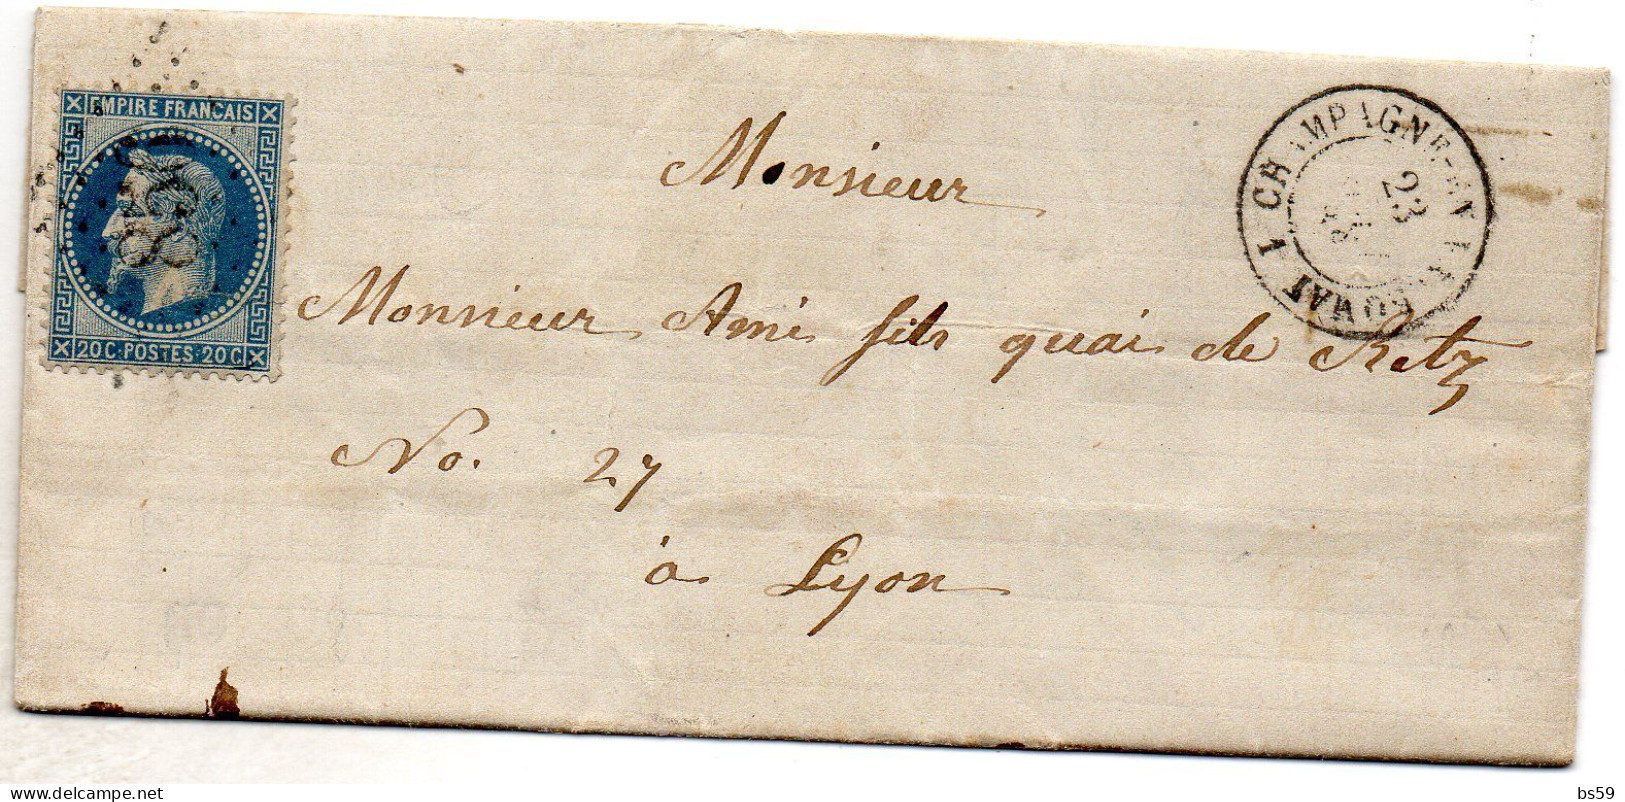 EMPIRE FRANCAIS
20C POSTES 20C
CHAMPAGNE-EN-VALROMAY
23
Monsieur
Monsieur Ami fils quai de Retz
No. 27
à Lyon
delcampe.net
bs59